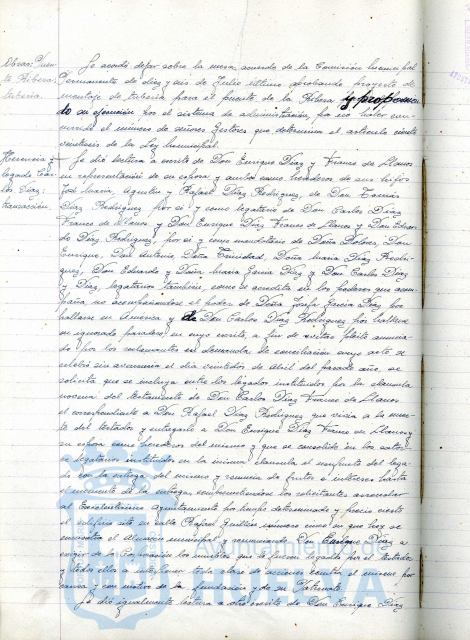 Obras: Puente Ribera: tubería.
Se acordó dejar sobre la mesa, acuerdo de la Comisión Municipal
Permanente de diez y seis de Julio último aprobando proyecto de
montaje de tubería para el puente de la Ribera y proponiendo
do su ejecución por el sistema de administración, por no haber con-
currido el número de señores Gestores que determina el artículo ciento
de la Ley Municipal.
Herencia y legado Carlos Díaz: transacción.
Se dió lectura a escrito de Don Enrique Díaz y Franco de Llanos
en representación de su esposa y ambos como herederos de sus hijos
José María, Agustín y Rafael Díaz Rodríguez, de Don Tomás
Díaz Rodríguez por sí y como legatario de Don Carlos Díaz
Franco de Llanos y Don Enrique Díaz Franco de Llanos y Don Eduardo
do Díaz Rodríguez, por sí y como mandatario de Doña Dolores, Don
Enrique, Don Antonio, Doña Trinidad, Doña María Díaz Rodrí-
guez, Don Eduardo y Doña María García Díaz y Don Carlos Díaz
y Díaz, legatarios también, como se acredita en los poderes que acom-
paña no acompañándose el poder de Doña Josefa García Díaz por
hallarse en América y de Don Carlos Díaz Rodríguez por hallarse
en ignorado paradero, en cuyo escrito, a fin de evitar pleito anuncia-
do por los reclamantes en demanda de conciliación cuyo acto se
celebró sin avenencia el día veintidos de Abril del pasado año, se
solicita que se incluya entre los legados instituidos por la cláusula
novena del testamento de Don Carlos Díaz Franco de Llanos
el correspondiente a Don Rafael Díaz Rodríguez que vivía a la muer-
te del testador y entregarlo a Don Enrique Díaz Franco de Llanos y
su esposa como herederos del mismo y que se consolide en los cator-
ce legatarios instituidos en la misma cláusula el usufructo del lega-
do con la entrega del mismo y renuncia de frutos e intereses hasta
el momento de la entrega, comprometiéndose los solicitantes a
al Excelentísimo Ayuntamiento por tiempo determinado y precio
el edificio sito en calle Rafael Guillén número once en que hoy se
encuentra el Museo municipal y renunciando Don Enrique Díaz a
exigir de la Corporación los muebles que le fueron legados por el testador
y todos ellos a interponer toda clase de acciones contra el mismo por
causa y con motivo de la fundación y de su Patronato.
Se dió igualmente lectura a otro escrito de Don Enrique Díaz
HUELVA